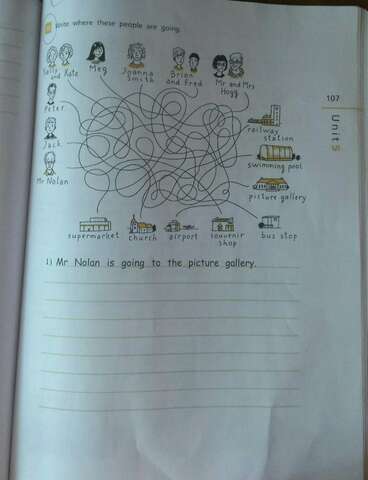 Write where these people are going.
Sally and Kate
Meg
Joanna Smith
Brian and Fred
Mr and Mrs Hogg
Peter
Jack
Mr Nolan
railway station
swimming pool
picture gallery
bus stop
souvenir shop
airport
church
supermarket
107
Unit 5
1) Mr Nolan is going to the picture gallery.